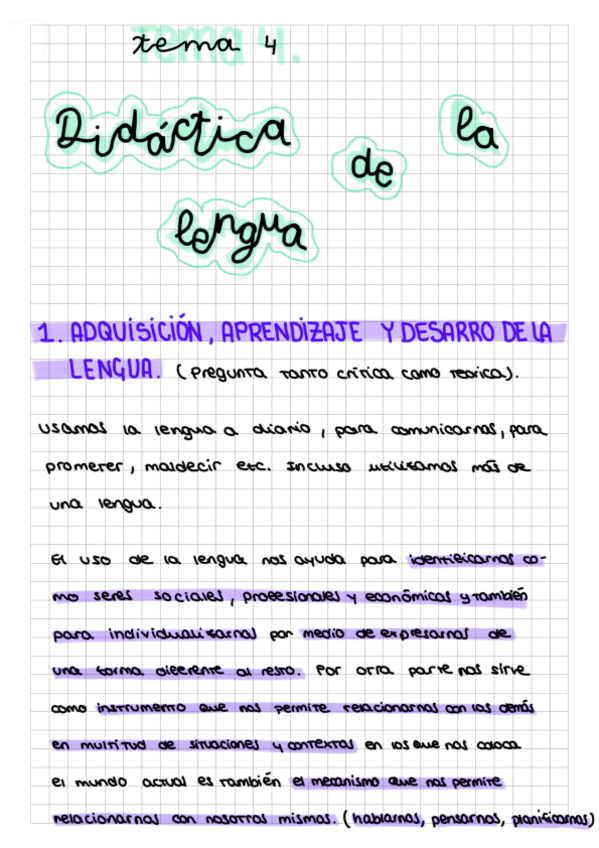 tema 4
Didáctica de la
lengua
1. ADQUISICIÓN, APRENDIZAJE Y DESARRO DE LA
LENGUA. (Pregunta tanto crítica como teorica).
usamos la lengua a diario, para comunicarnos, para
prometer, maldecir etc. Incluso utilizamos más de
una lengua.
El uso de la lengua nos ayuda para identificarnos co-
mo seres sociales, profesionales y económicos y también
para individualizarnos por medio de expresarnos de
una forma diferente al resto. Por otra parte nos sirve
como instrumento que nos permite relacionarnos con los demás
en multitud de situaciones y contextos en los que nos coloca
el mundo actual es también el mecanismo que nos permite
relacionarnos con nosotros mismos. (hablarnos, pensarnos, planificarnos)